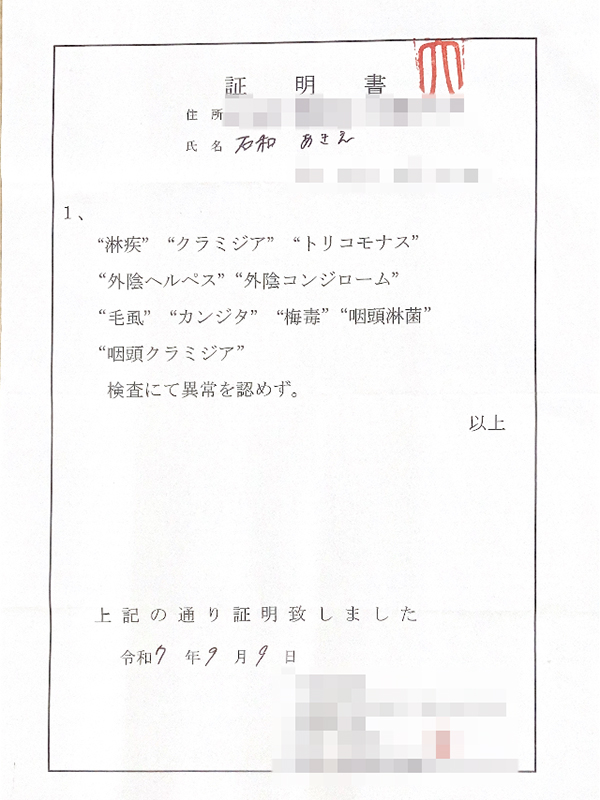 証明書
住所
氏名 石和 あきえ
1、
“淋疾” “クラミジア” “トリコモナス”
“外陰ヘルペス” “外陰コンジローム”
“毛虱” “カンジタ” “梅毒” “咽頭淋菌”
“咽頭クラミジア”
検査にて異常を認めず。
以上
上記の通り証明致しました
令和7年9月9日